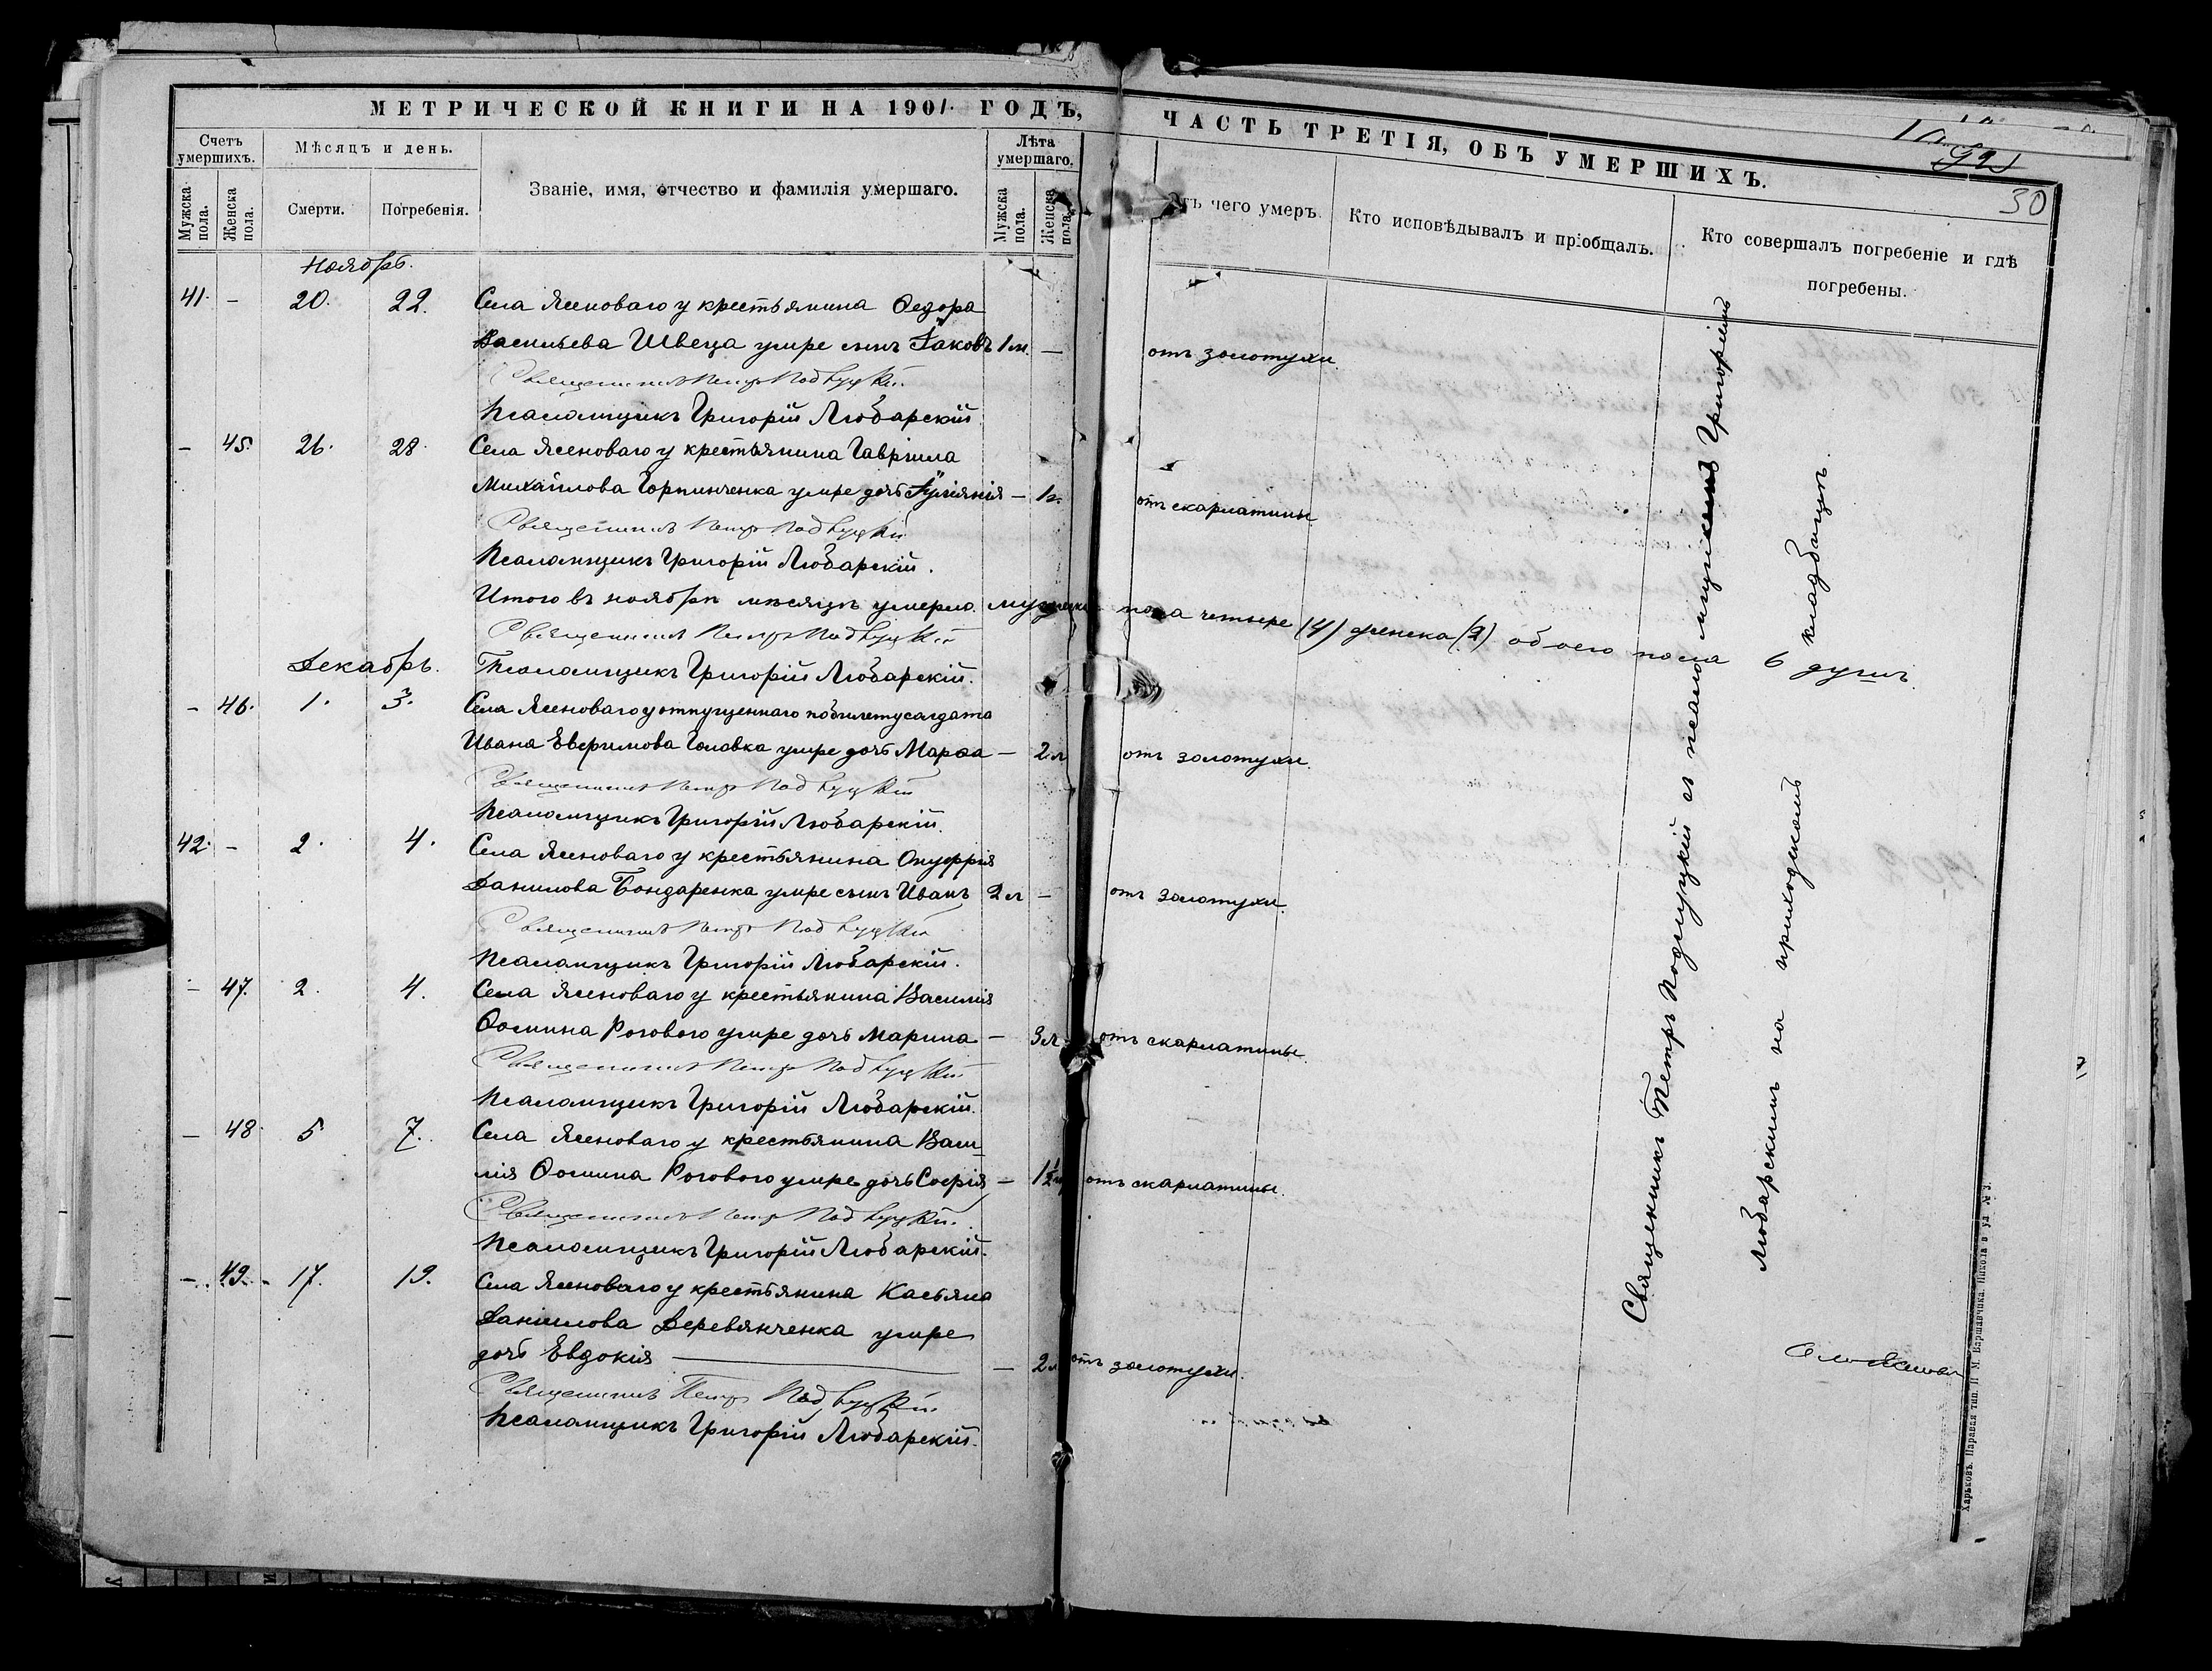 МЕТРИЧЕСКОЙ КНИГИ НА 1901 ГОДЪ,
ЧАСТЬ ТРЕТІЯ, ОБЪ УМЕРШИХЪ.
30
Счетъ умершихъ.
Мѣсяцъ и день.
Званіе, имя, отчество и фамилія умершаго.
Лѣта умершаго.
Мужска пола.
Женска пола.
Смерти.
Погребенія.
Мужска пола.
Женска пола.
чего умеръ.
Кто исповѣдывалъ и пріобщалъ.
Кто совершалъ погребеніе и гдѣ погребены.
Ноябрь.
41. - 20. 22. Села Ясеноваго у крестьянина Ѳедора
Васильева Швеца умре сынъ Іаковъ 1 м. — отъ золотухи.
Священникъ Петръ Подлуцкій
Псаломщикъ Григорій Любарскій
- 45. 26. 28. Села Ясеноваго у крестьянина Гавріила
Михайлова Горпинченка умре дочь Іуліанія — 1 г. отъ скарлатины
Священникъ Петръ Подлуцкій
Псаломщикъ Григорій Любарскій.
Итого въ ноябрѣ мѣсяцѣ умерло мужеска пола четыре (4) женска (2) обоего пола 6 душъ.
Священникъ Петръ Подлуцкій
Декабрь. Псаломщикъ Григорій Любарскій.
- 46. 1. 3. Села Ясеноваго у отпущеннаго по билету солдата
Ивана Евфимова Головка умре дочь Марѳа — 2 л отъ золотухи.
Священникъ Петръ Подлуцкій
Псаломщикъ Григорій Любарскій.
42. - 2. 4. Села Ясеноваго у крестьянина Онуфрія
Данилова Бондаренка умре сынъ Иванъ 2 л — отъ золотухи.
Священникъ Петръ Подлуцкій
Псаломщикъ Григорій Любарскій.
- 47. 2. 4. Села Ясеноваго у крестьянина Василія
Ѳомина Рогового умре дочь Марина — 3 л. отъ скарлатины.
Священникъ Петръ Подлуцкій
Псаломщикъ Григорій Любарскій.
- 48. 5 7. Села Ясеноваго у крестьянина Васи
лія Ѳомина Рогового умре дочь Софія — 1½ отъ скарлатины.
Священникъ Петръ Подлуцкій.
Псаломщикъ Григорій Любарскій.
- 49. 17. 19. Села Ясеноваго у крестьянина Касьяна
Даніилова Деревянченка умре
дочь Евдокія — 2 л отъ золотухи.
Священникъ Петръ Подлуцкій.
Псаломщикъ Григорій Любарскій.
Священникъ Петръ Подлуцкій съ псаломщикомъ Григоріемъ
Любарскимъ на приходскомъ кладбищѣ.